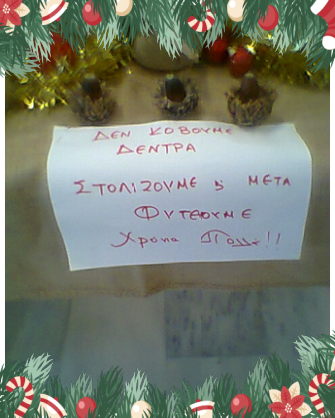 ΔΕΝ ΚΟΒΟΥΜΕ
ΔΕΝΤΡΑ
ΣΤΟΛΙΖΟΥΜΕ ΜΕΤΑ
ΦΥΤΕΥΟΥΜΕ
Χρόνια Πολλά!!